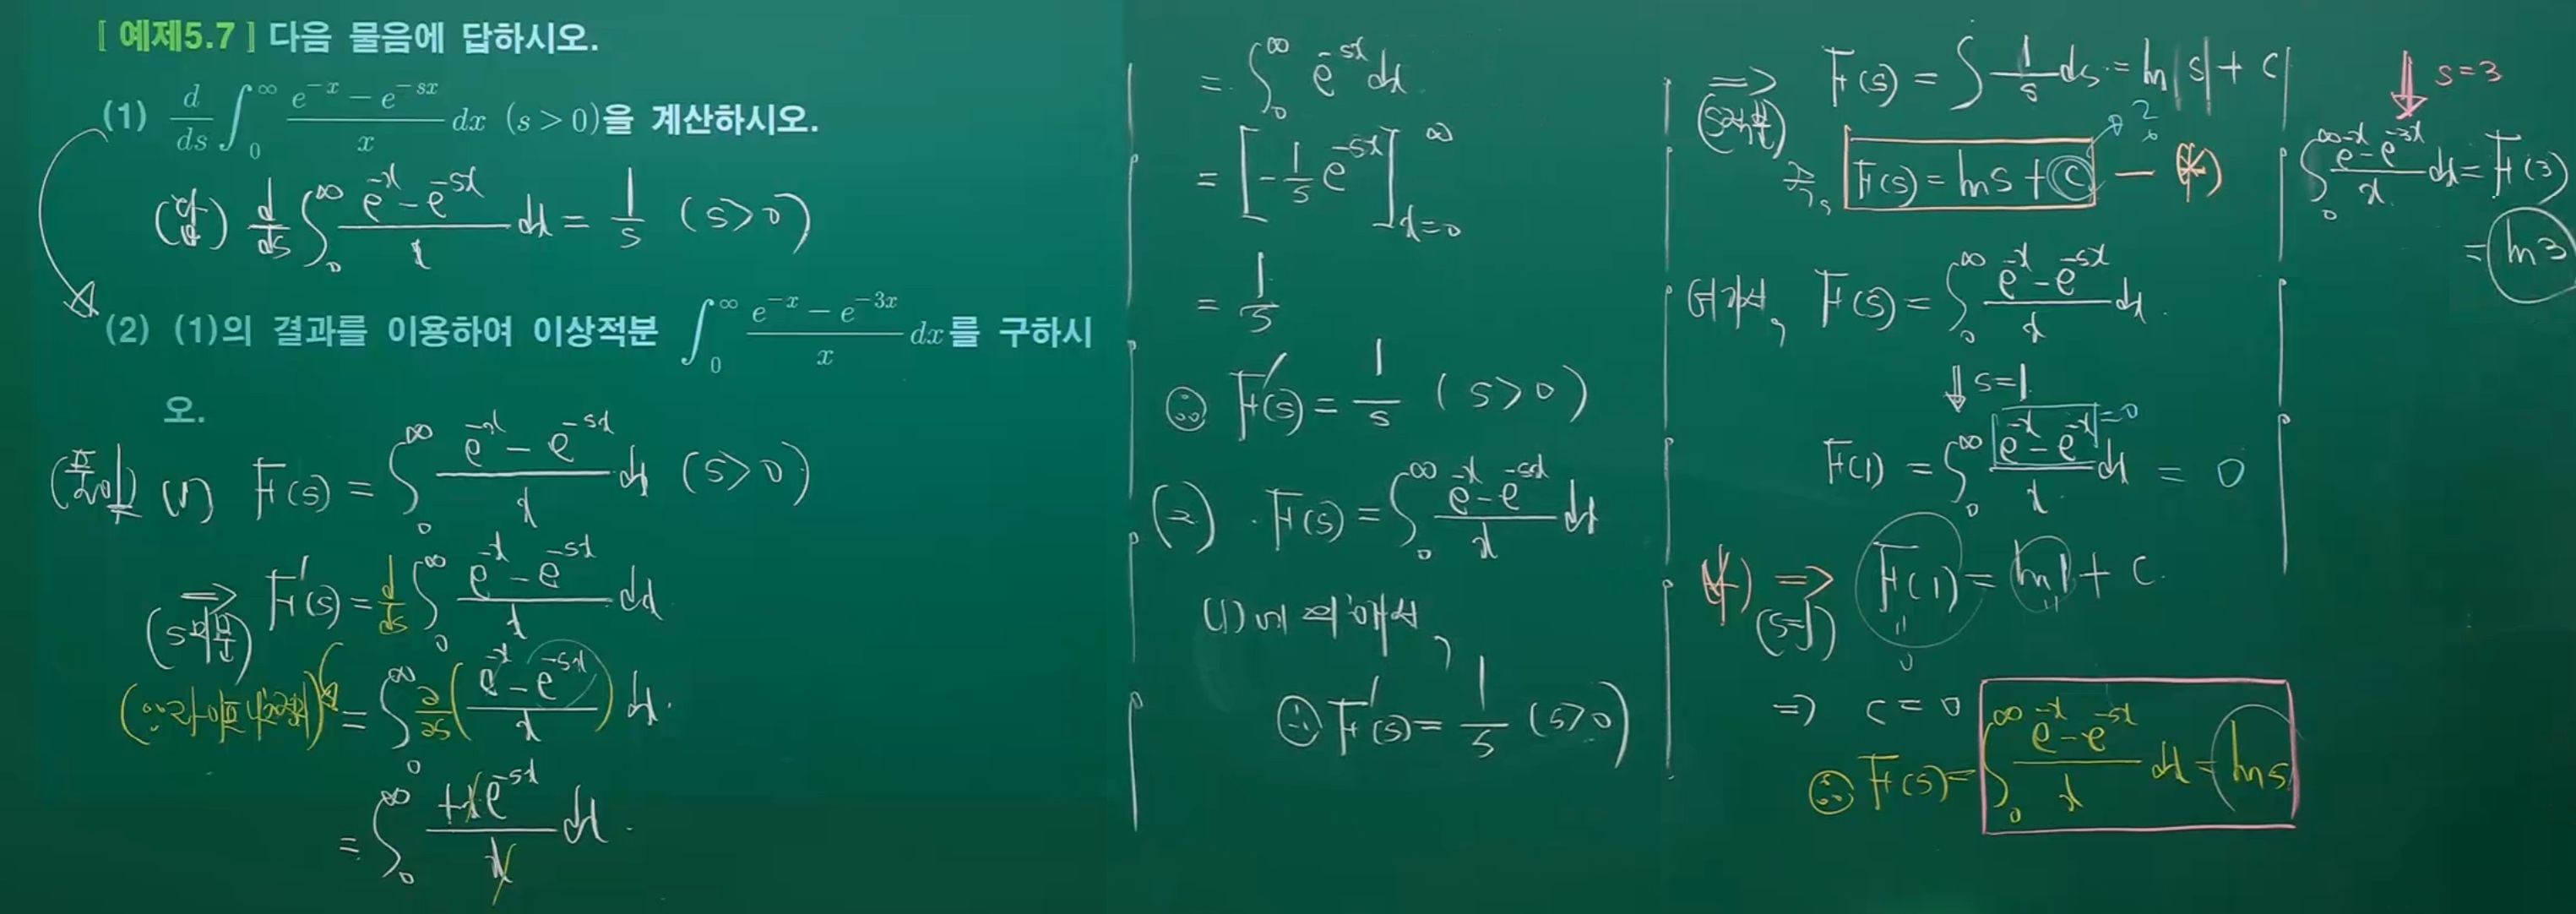 [ 예제5.7 ] 다음 물음에 답하시오.
(1) d/ds ∫_0^∞ (e^{-x} - e^{-sx})/x dx (s > 0)을 계산하시오.
(답) d/ds ∫_0^∞ (e^{-x} - e^{-sx})/x dx = 1/s (s>0)
(2) (1)의 결과를 이용하여 이상적분 ∫_0^∞ (e^{-x} - e^{-3x})/x dx를 구하시
오.
(풀이) (1) F(s) = ∫_0^∞ (e^{-x} - e^{-sx})/x dx (s>0)
⇒ (s미분) F'(s) = d/ds ∫_0^∞ (e^{-x} - e^{-sx})/x dx
(∵라이프니츠정리) = ∫_0^∞ ∂/∂s ((e^{-x} - e^{-sx})/x) dx.
= ∫_0^∞ (+xe^{-sx})/x dx.
= ∫_0^∞ e^{-sx} dx.
= [-1/s e^{-sx}]_{x=0}^∞
= 1/s
∴ F'(s) = 1/s (s>0)
(2) . F(s) = ∫_0^∞ (e^{-x} - e^{-sx})/x dx
(1)에 의해서,
∴ F'(s) = 1/s (s>0)
⇒ (s적분) F(s) = ∫ 1/s ds = ln|s| + C
F(s) = ln s + C — (*)
여기서, F(s) = ∫_0^∞ (e^{-x} - e^{-sx})/x dx.
⇓ s=1.
F(1) = ∫_0^∞ (e^{-x} - e^{-x})/x dx = 0
=0
(*) ⇒ (s=1) F(1) = ln1 + C.
" "
0
⇒ C = 0
∴ F(s) = ∫_0^∞ (e^{-x} - e^{-sx})/x dx = ln s
⇓ s=3
∫_0^∞ (e^{-x} - e^{-3x})/x dx = F(3)
= ln3